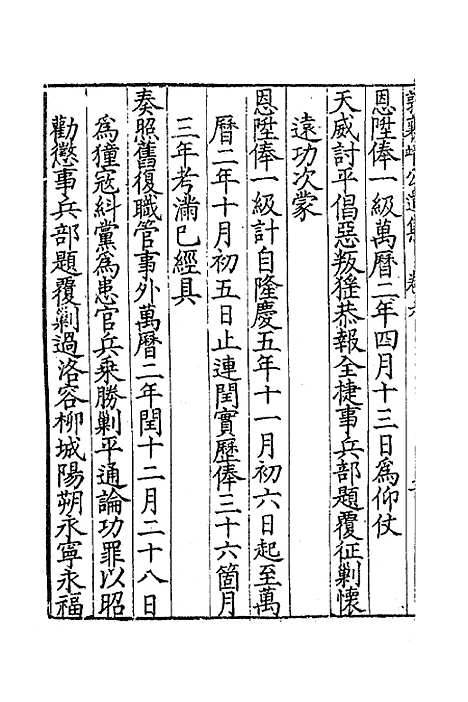 郭襄靖公遺集 卷六
恩陞俸一級萬曆二年四月十三日爲仰仗
天威討平倡惡叛猺恭報全捷事兵部題覆征剿懷
遠功次蒙
恩陞俸一級計自隆慶五年十一月初六日起至萬
曆二年十月初五日止連閏實歷俸三十六箇月
三年考滿已經具
奏照舊復職管事外萬曆二年閏十二月二十八日
爲獞寇糾黨爲患官兵乘勝剿平通論功罪以昭
勸懲事兵部題覆剿過洛容柳城陽朔永寧永福